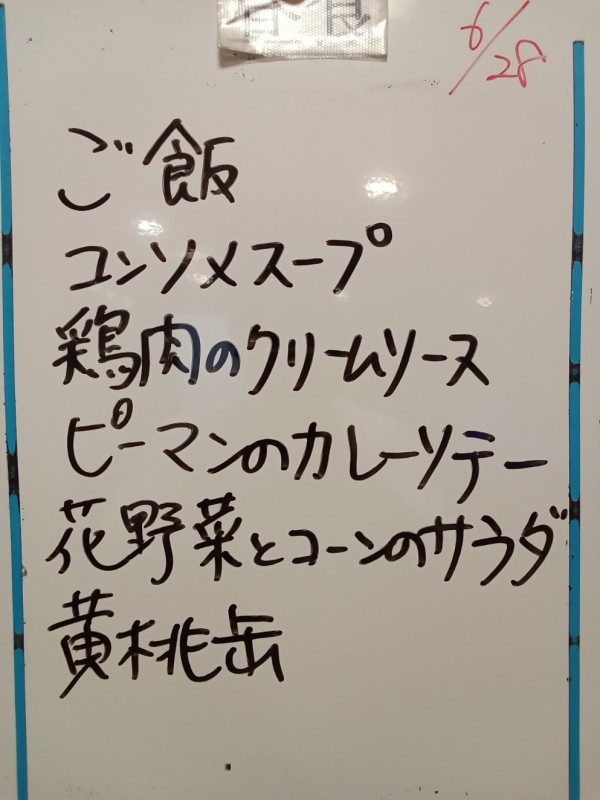 6/28
ご飯
コンソメスープ
鶏肉のクリームソース
ピーマンのカレーソテー
花野菜とコーンのサラダ
黄桃缶